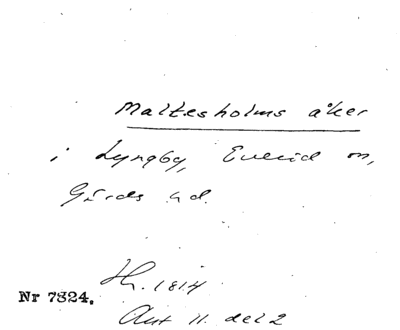 Maltesholms åker
i Lyngby, Everöd sn,
Gärds hd.
Hr. 1814
Nr 7324.
Akt 11. del 2